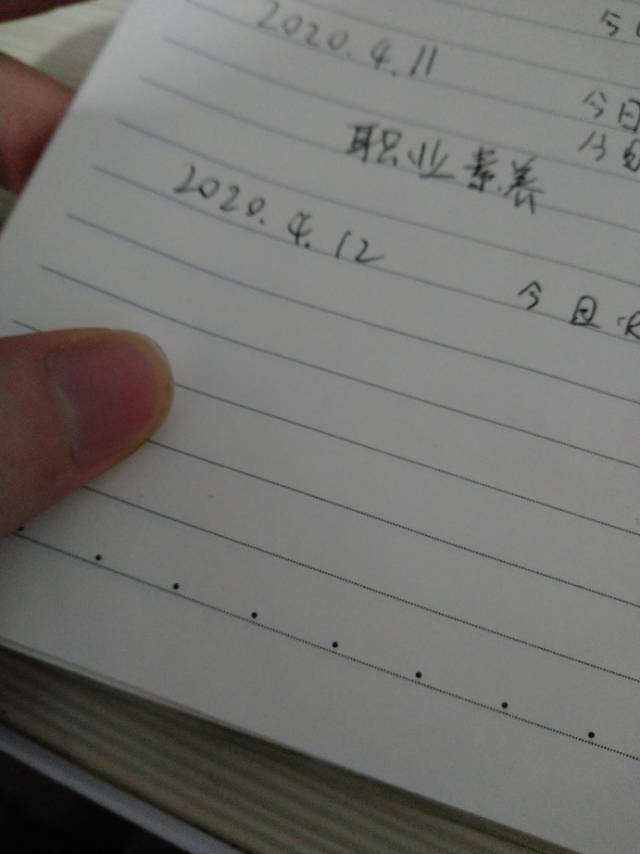 2020.4.11
今日
今日
职业素养
2020.4.12
今日